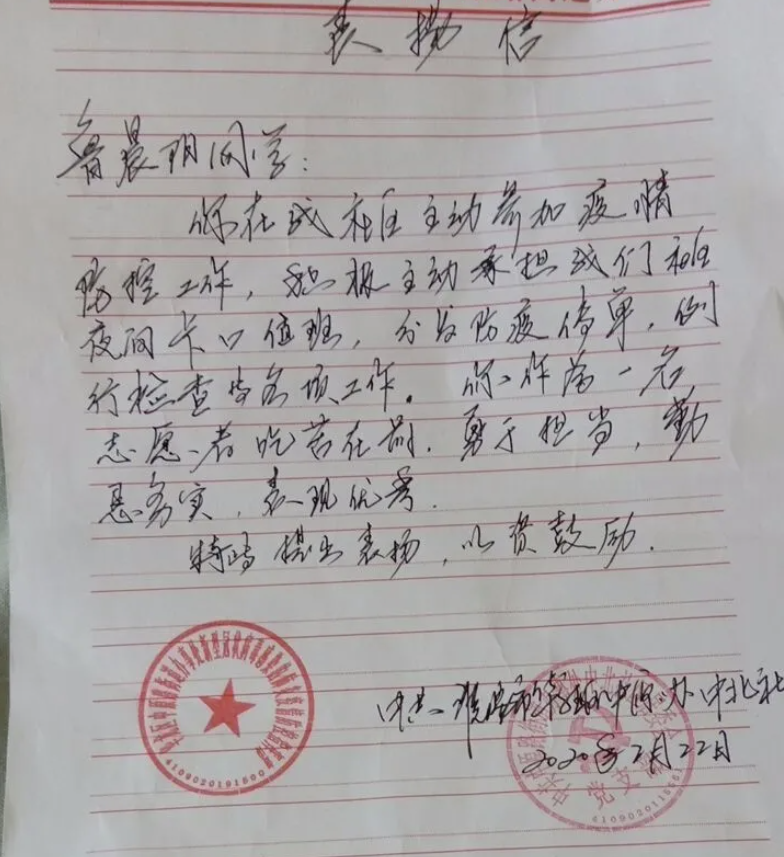 表扬信
鲁晨阳同学：
你在我社区主动参加疫情
防控工作，积极主动承担我们社区
夜间卡口值班，分发防疫传单，例
行检查等各项工作。你作为一名
志愿者吃苦在前，勇于担当，勤
恳务实，表现优秀。
特此提出表扬，以资鼓励。
中共濮阳市 中原办中北社
2020年2月22日
党支部